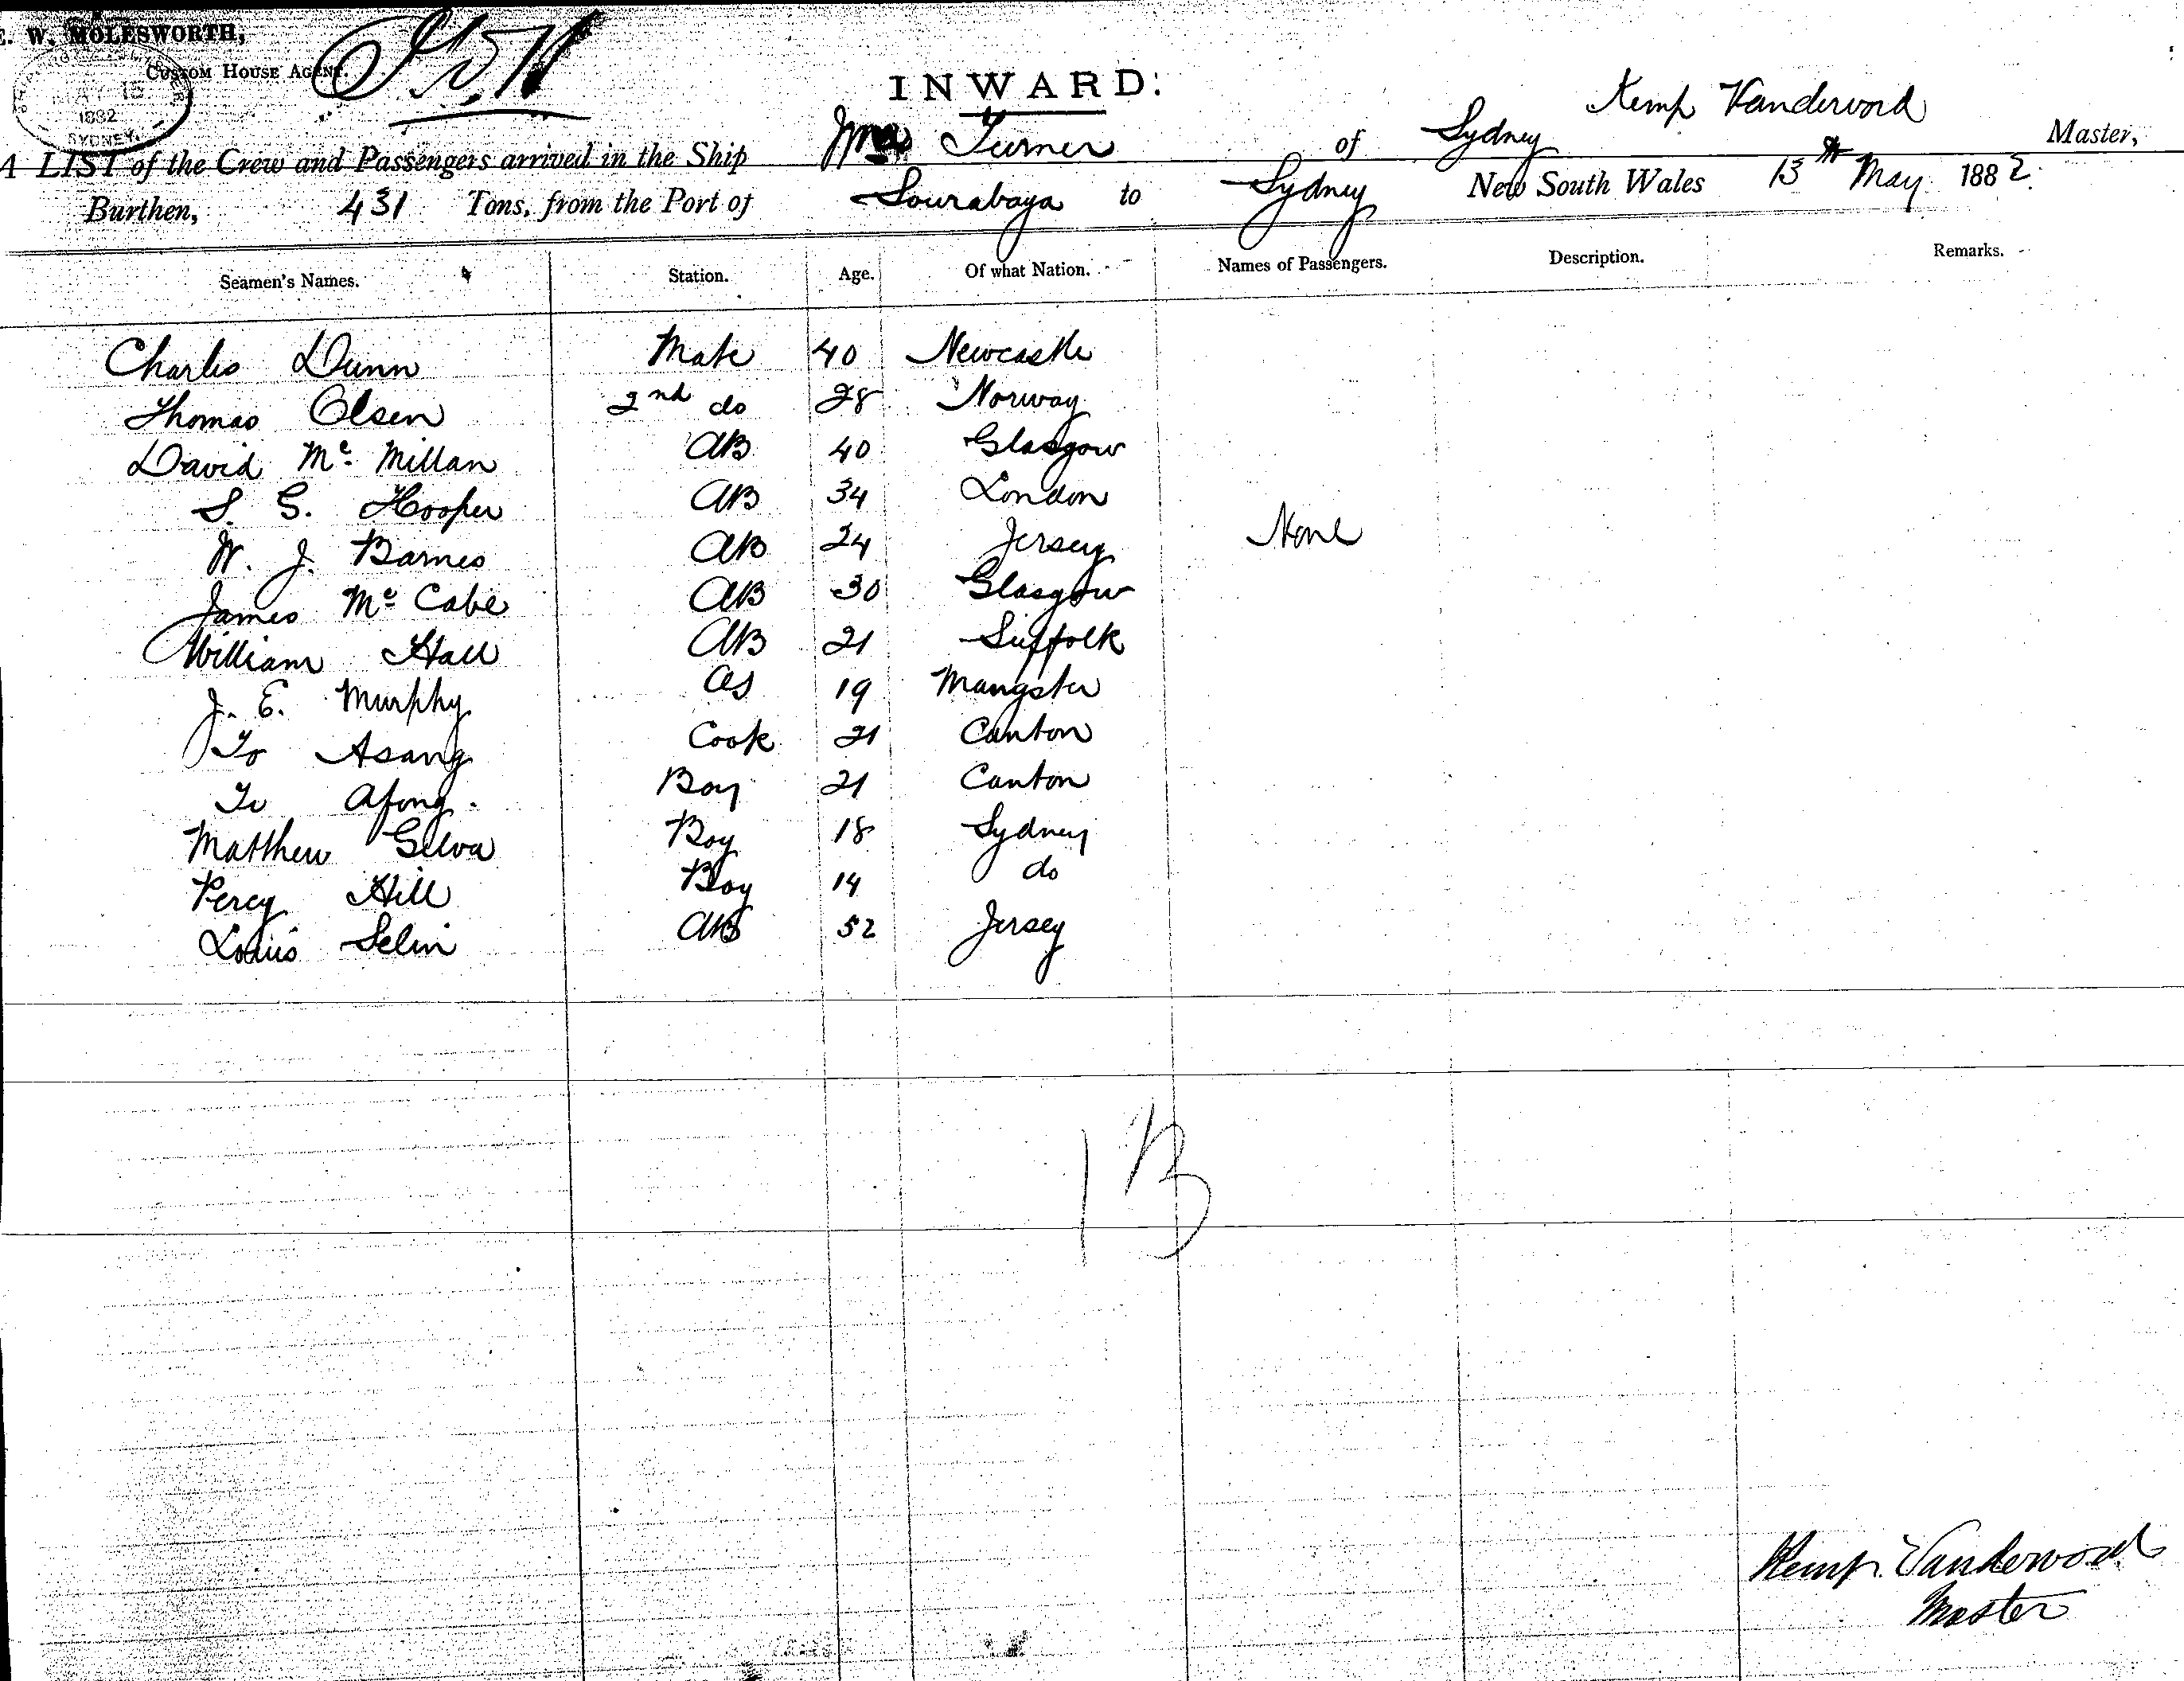 E. W. MOLESWORTH,
CUSTOM HOUSE AGENT.
MAY 13
1882
SYDNEY
INWARD:
A LIST of the Crew and Passengers arrived in the Ship Turner of Sydney Kemp Vanderword Master,
Burthen, 431 Tons, from the Port of Sourabaya to Sydney New South Wales 13th May 1882
Seamen's Names. Station. Age. Of what Nation. Names of Passengers. Description. Remarks.
Charles Dunn Mate 40 Newcastle
Thomas Olsen 2nd do 28 Norway
David Mc Millan AB 40 Glasgow
S. G. Hooper AB 34 London
W. J. Barnes AB 24 Jersey None
James Mc Cabe AB 30 Glasgow
William Hall AB 21 Suffolk
J. E. Murphy OS 19 Mangster
To Asang Cook 21 Canton
To Afong. Boy 21 Canton
Matthew Gelva Boy 18 Sydney
Percy Hill Boy 14 do
Louis Selin AB 52 Jersey
13
Kemp Vanderword
Master